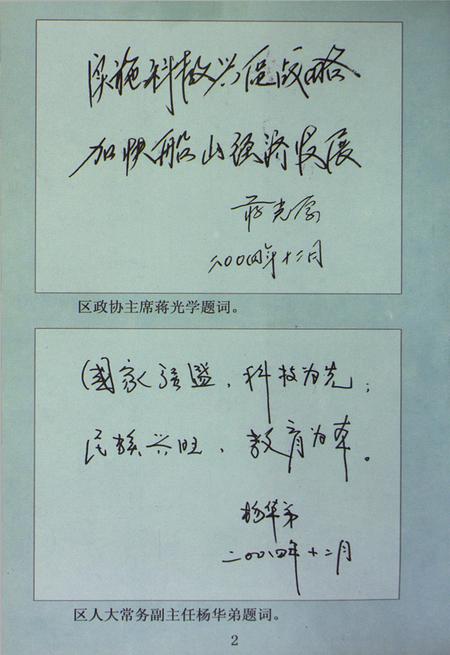 实施科教兴区战略
加快船山经济发展
蒋光学
二00四年十二月
区政协主席蒋光学题词。
国家强盛，科技为先；
民族兴旺，教育为本。
杨华弟
二00四年十二月
区人大常务副主任杨华弟题词。
2